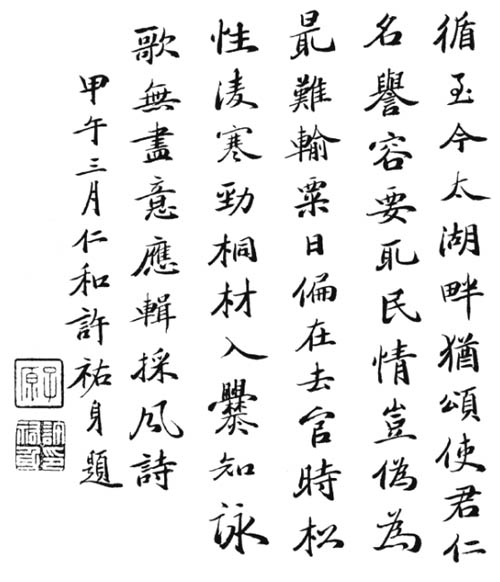 循至今太湖畔猶頌使君仁
名譽容要取民情豈偽為
最難輸粟日偏在去官時松
性淩寒勁桐材入爨知詠
歌無盡意應輯採風詩
甲午三月仁和許祐身題
子原